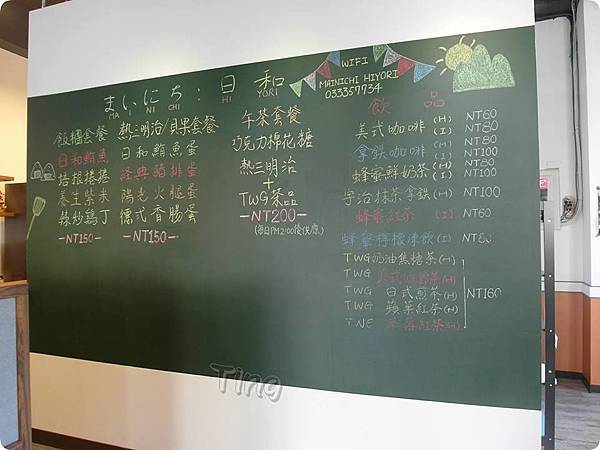 まいにち:日和
MA I NI CHI HI YORI
WIFI
MAINICHI HIYORI
033357734
飯糰套餐
日和鮪魚
培根捲捲
養生紫米
辣炒鷄丁
—NT150—
熱三明治/貝果套餐
日和鮪魚蛋
經典豬排蛋
陽光火腿蛋
德式香腸蛋
—NT150—
午茶套餐
巧克力棉花糖
熱三明治
+
TWG茶品
—NT200—
(每日PM2:00後供應)
飲品
美式咖啡 (H) NT60
(I) NT80
拿鐵咖啡 (H) NT80
(I) NT100
蜂蜜鮮奶茶 (H) NT80
(I) NT100
宇治抹茶拿鐵 (H) NT100
蜂蜜紅茶 (I) NT60
蜂蜜檸檬凍飲 (I) NT80
TWG 奶油焦糖茶(H)
TWG 美式 茶(H)
TWG 日式煎茶(H)
TWG 蘋菓紅茶(H)
紅茶(H)
NT160
Ting